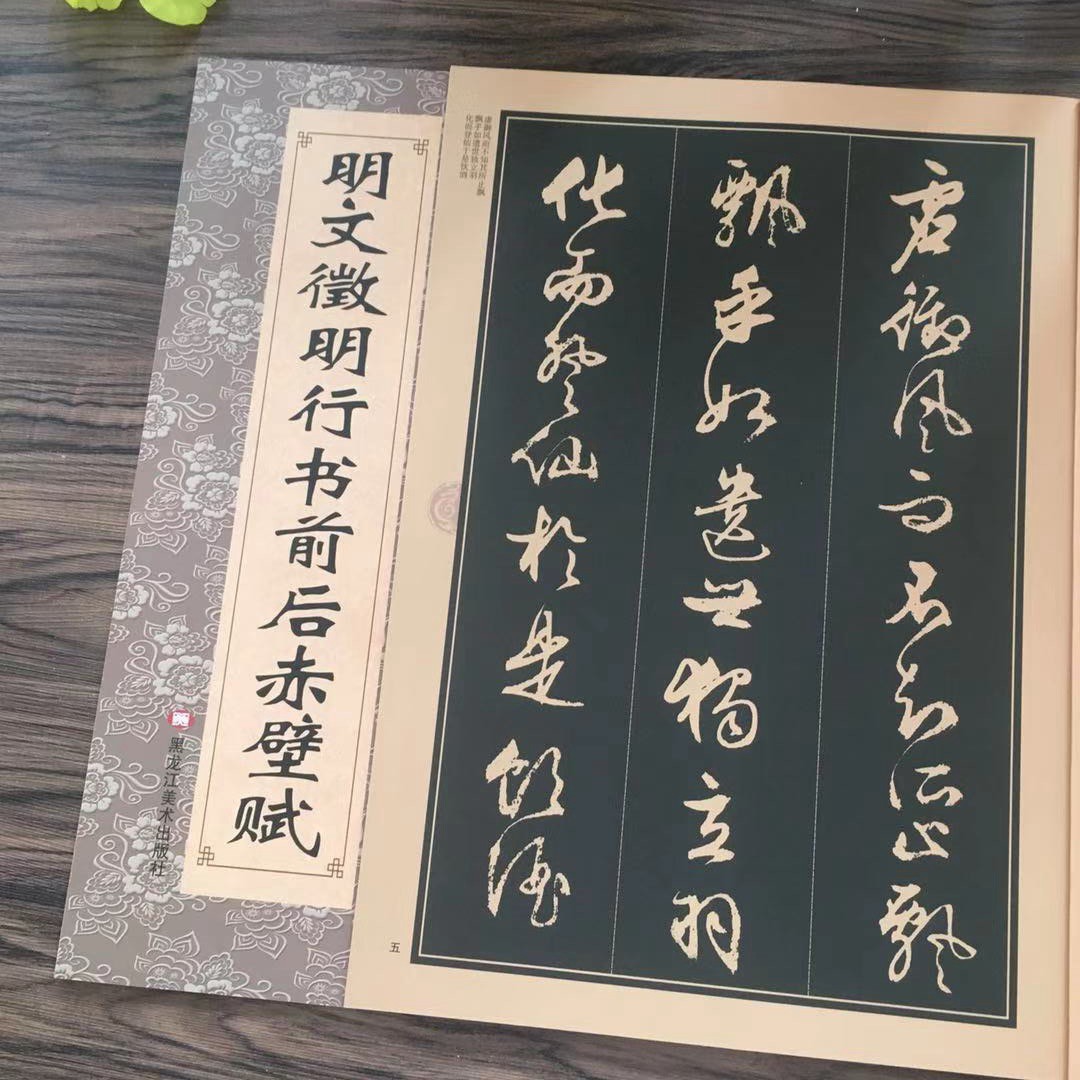 明文徵明行书前后赤壁赋
黑龙江美术出版社
虚御风而不知其所止飘
飘乎如遗世独立羽
化而登仙于是饮酒
虚御风而不知所止飘
飘乎如遗世独立羽
化而登仙於是饮酒
五